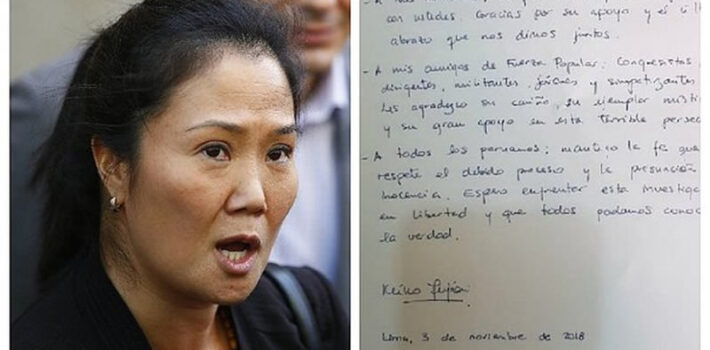 con ustedes. Gracias por su apoyo y el
abrazo que nos dimos juntos.
- A mis amigos de Fuerza Popular: Congresistas
dirigentes, militantes, jóvenes y simpatizantes
Les agradezco su cariño, su ejemplar
y su gran apoyo en esta terrible persec
- A todos los peruanos: mantengo la fe que
respete el debido proceso y la presunción
inocencia. Espero enfrentar esta investiga
en libertad y que todos podamos conoc
la verdad.
Keiko Fujimori
Lima, 3 de noviembre de 2018